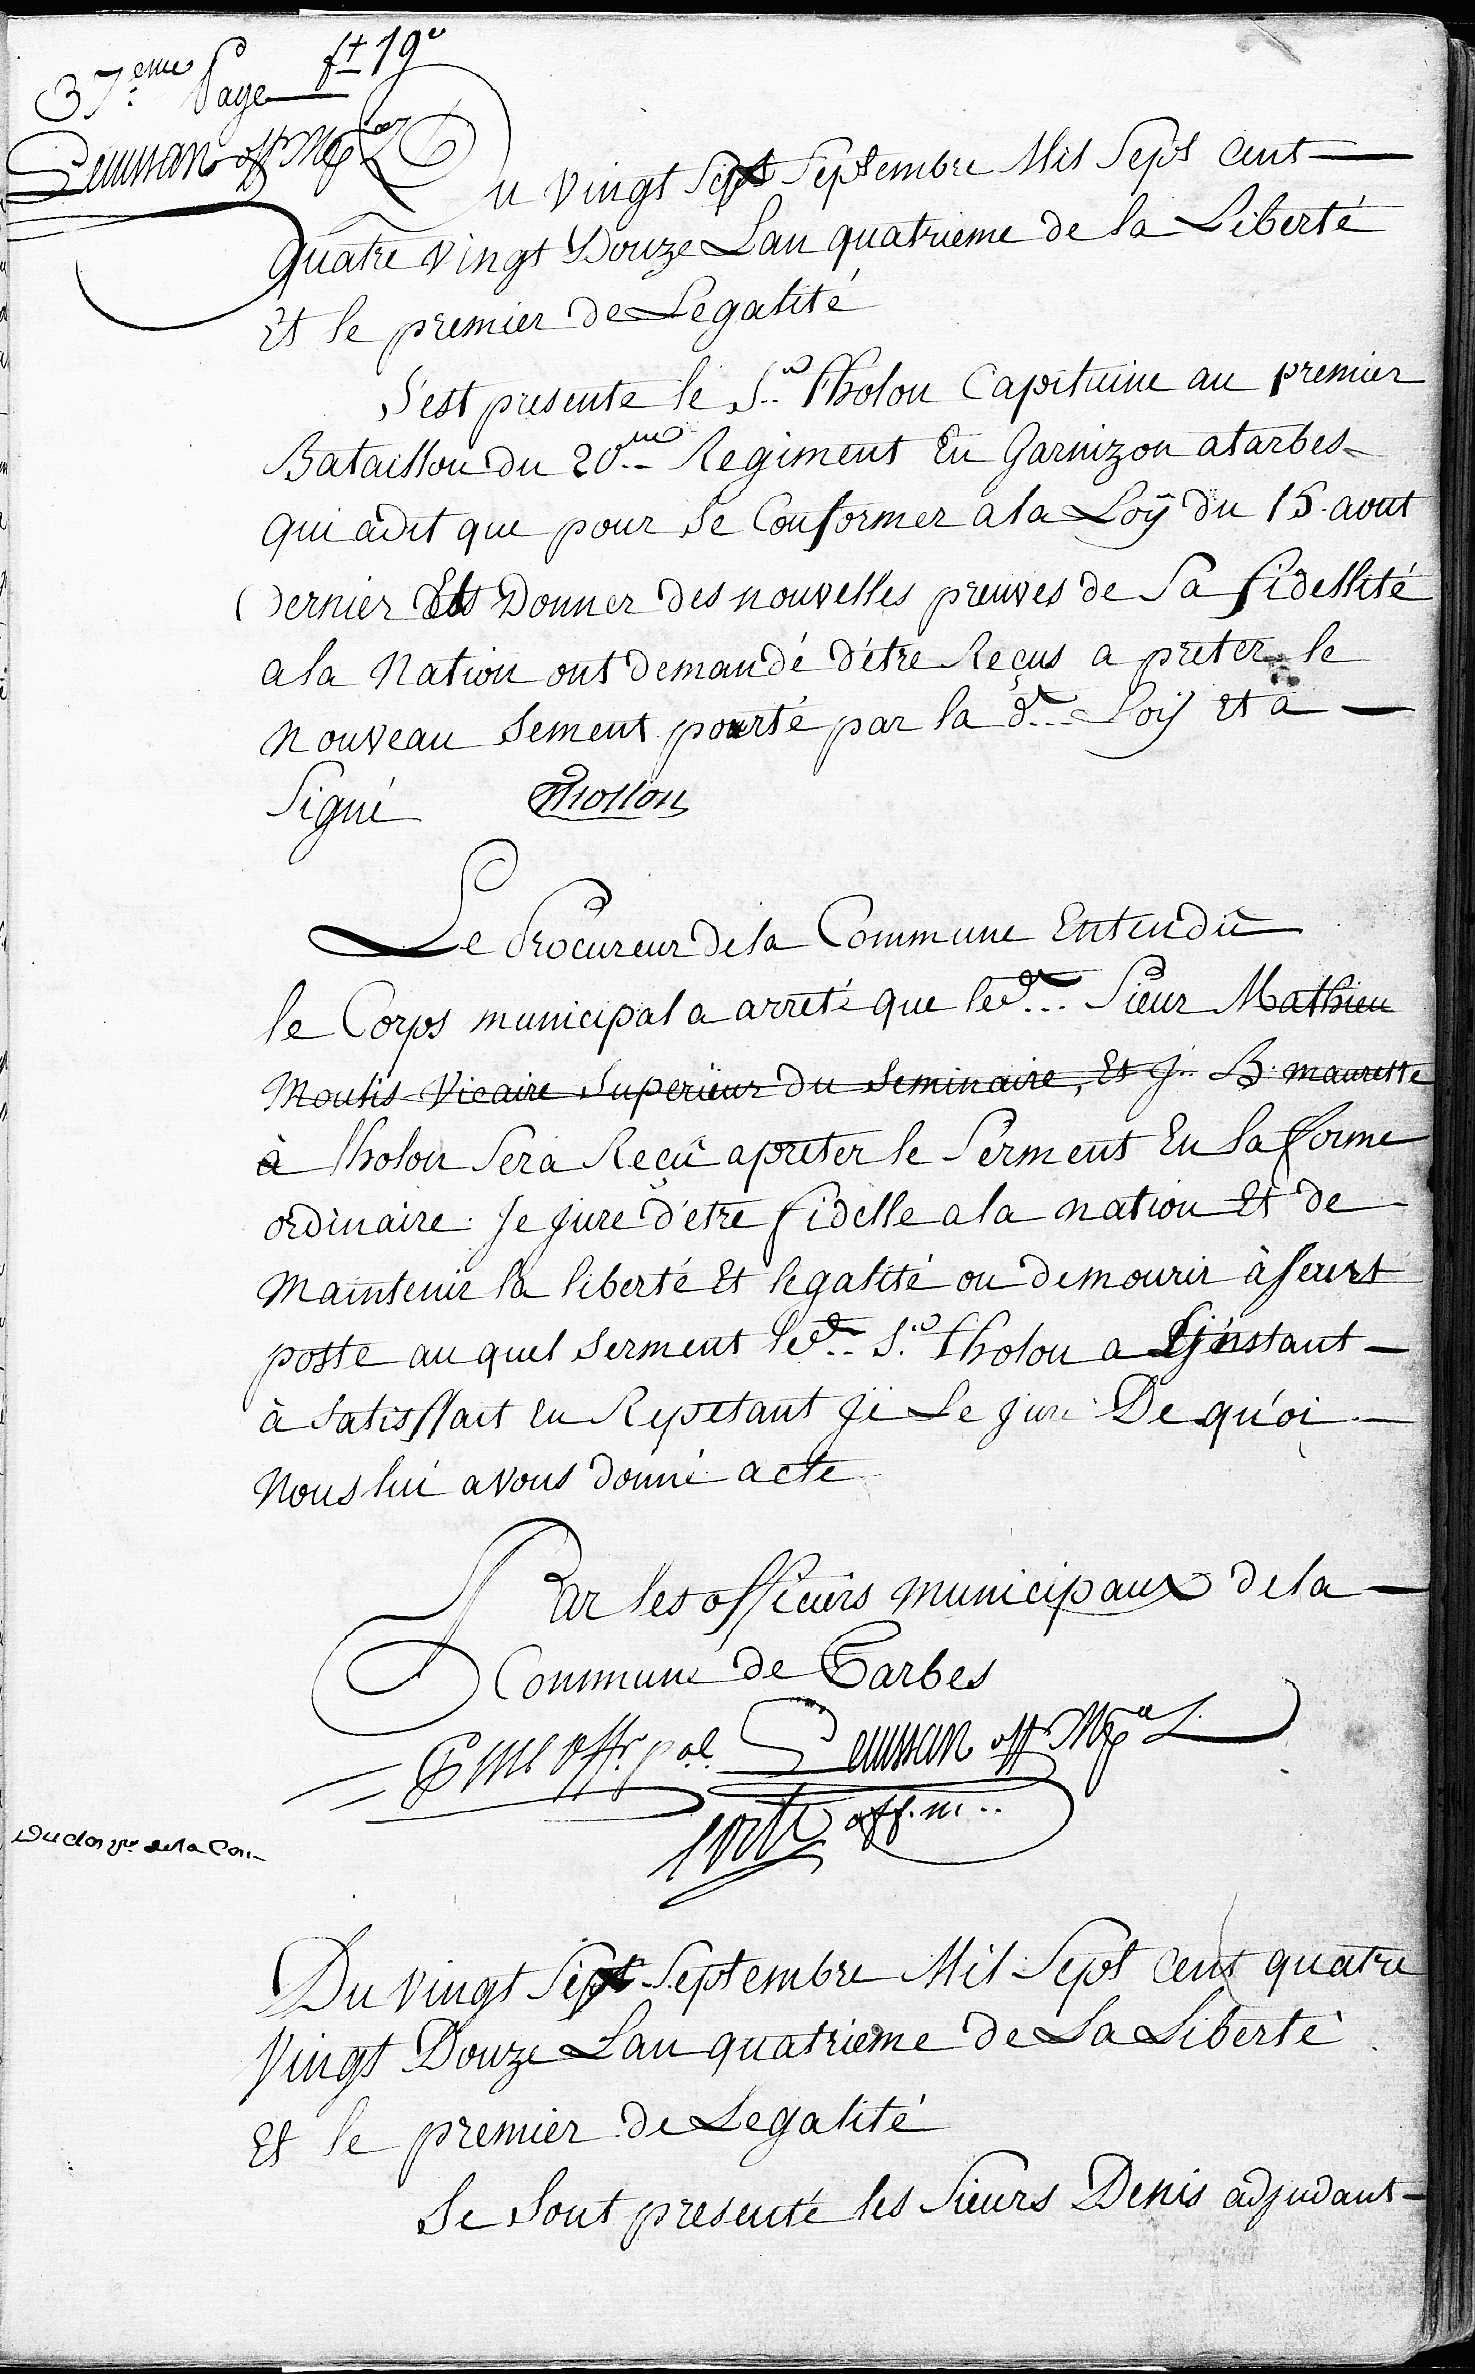 37.eme Page ft 19e
Seaussan off Mpal
Du vingt sept Septembre Mil Sept cent
quatre vingt Douze Lan quatrieme de la Liberté
Et le premier de Legalité
S'est presente le Sr Tholon Capitaine au premier
Bataillon du 20me Regiment En Garnizon a tarbes
qui a dit que pour se Conformer a la Loÿ du 15. aout
Dernier Et Donner des nouvelles preuves de Sa fidellité
a la Nation ont demandé d'étre Reçus a preter le
nouveau serment pourté par la de Loÿ et a
Signé Thollon
Le Procureur de la Commune Entendû
le Corps municipal a arreté que led. Sieur Mathieu
Moulis Vicaire Superieur du Seminaire, Et J. B. maurette
à Tholon Sera Reçû a preter le Serment En la forme
ordinaire. Je jure d'etre fidelle a la nation Et de
Maintenir la liberté Et legalité ou de mourir à
poste au quel serment led. Sr Tholon a Linstant
à satisffait en Repetant Je Le jure De qu'oi
Nous lui avons donné acte
Par les officiers municipaux de la
Commune de Tarbes
off. pal. Seaussan off Mpal
off. m..
Duclos pr de la Com
Du vingt Sept Septembre Mil Sept cent quatre
Vingt Douze Lan quatrieme de La Liberté
Et le premier de Legalité
Se sont presenté les Sieurs Denis adjudant